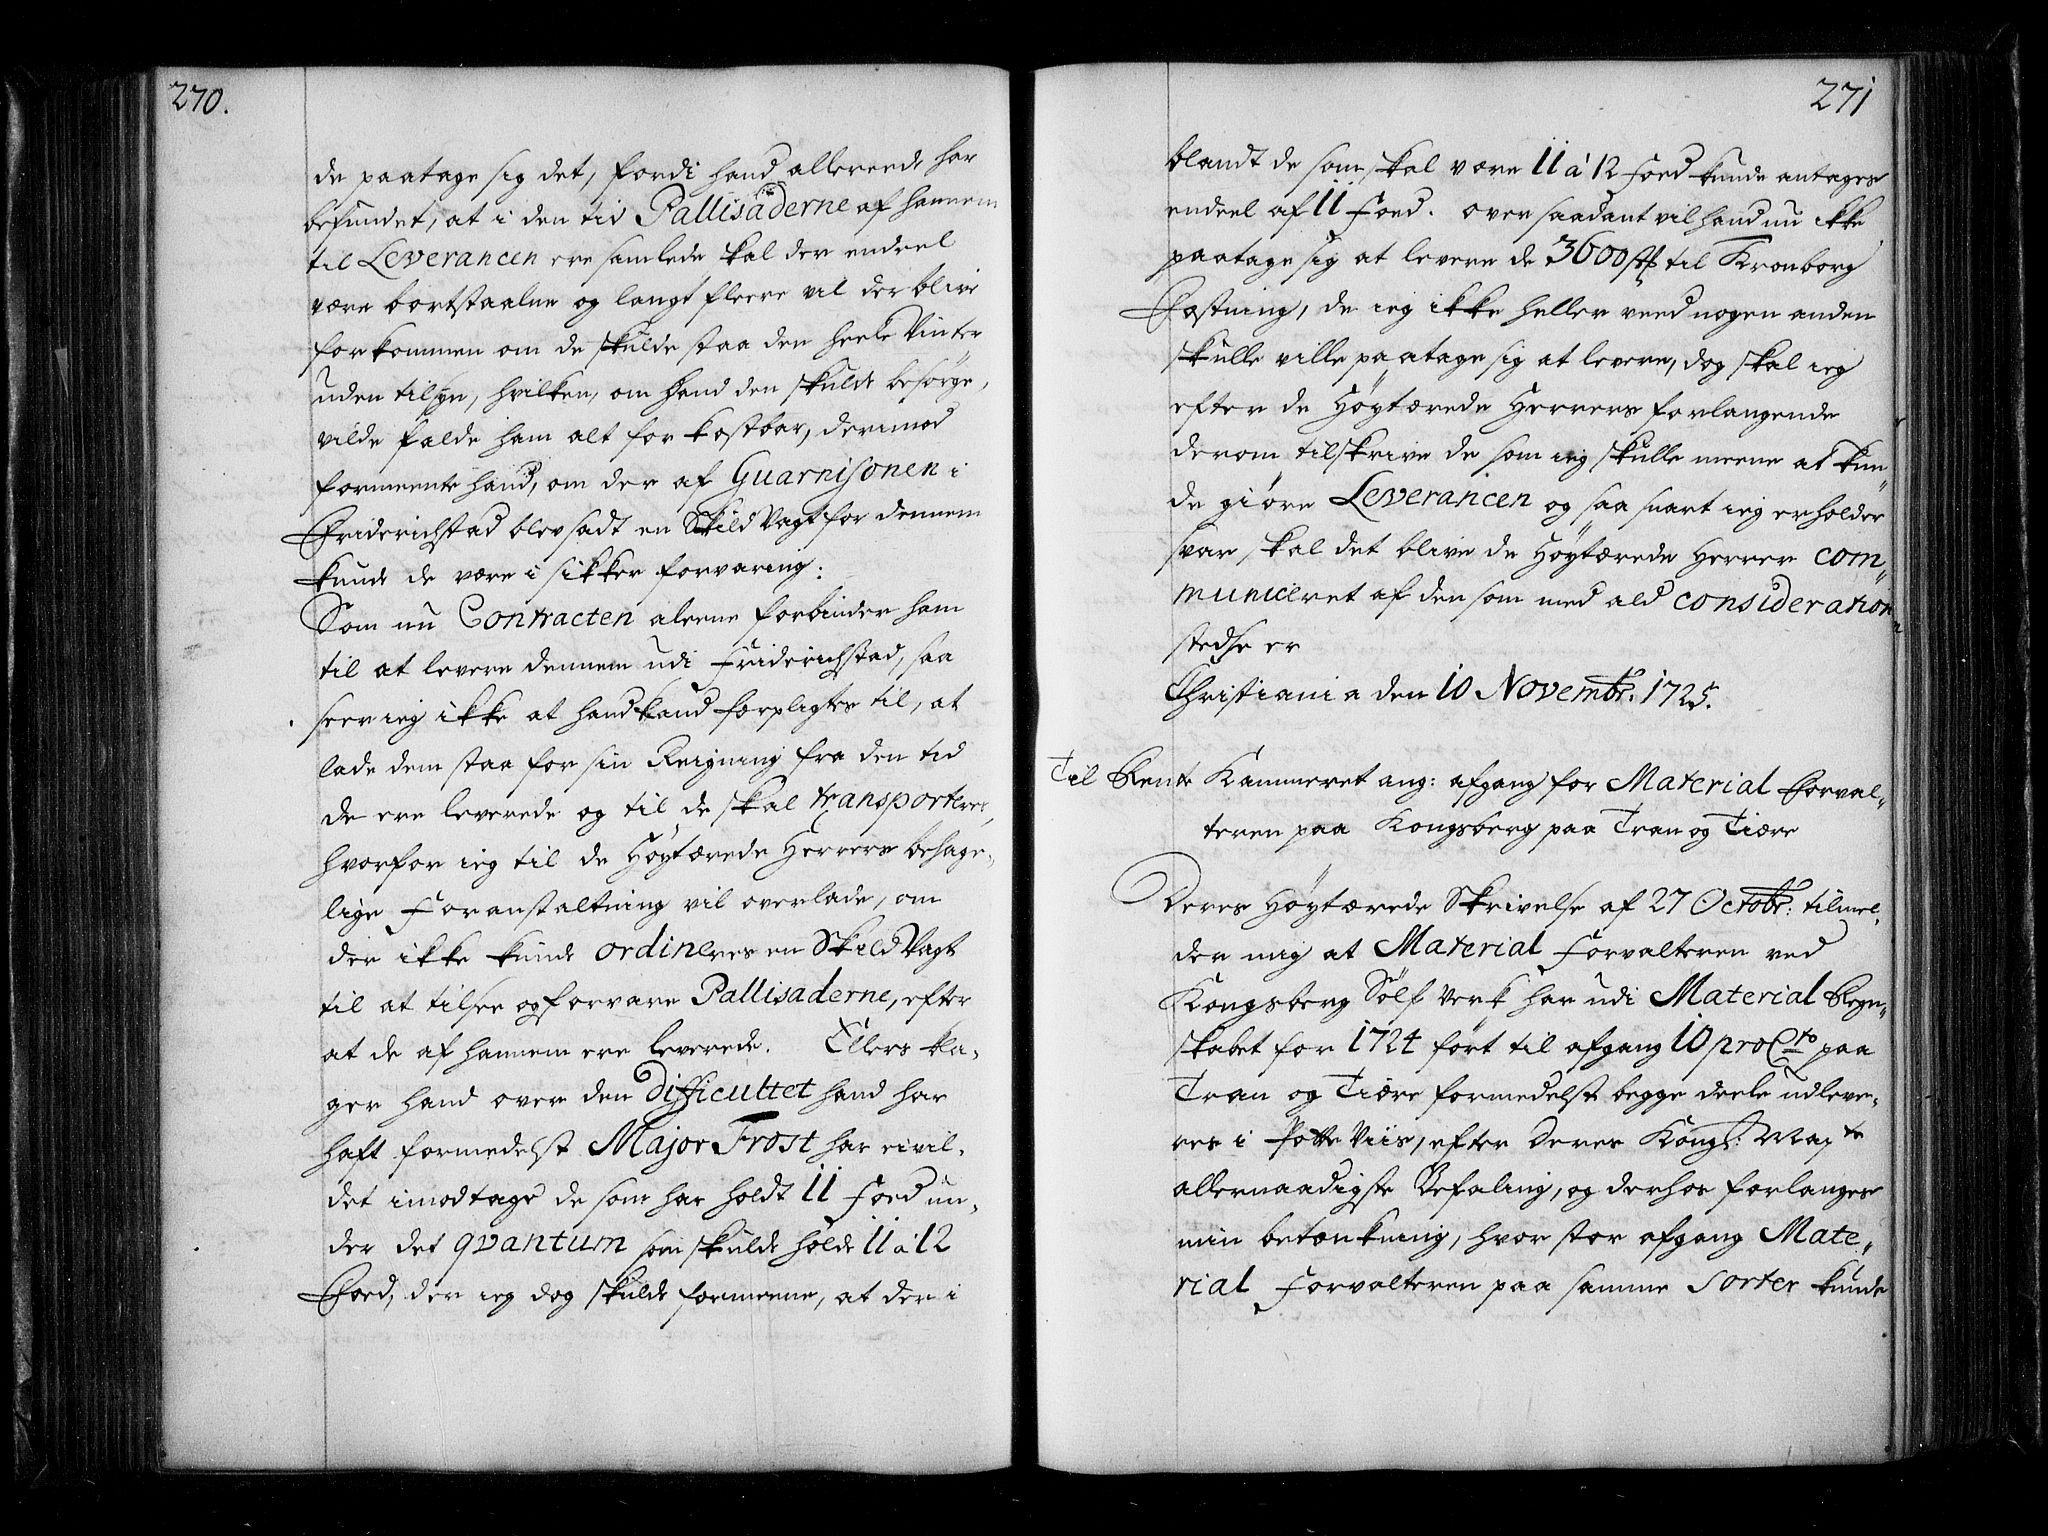 270.
de paatage sig det, fordi hand allereede har
befundet, at i den tid Pallisaderne af hannem
til Leverancen ere samlede skal der endeel
være bortstaalne og langt fleere vil der blive
forkommen om de skulde staa den heele Vinter
uden tilsyn, hvilken, om hand den skulde besørge,
vilde falde ham alt for kostbar, derimod
formeente hand, om der af Guarnisonen i
Friderichstad blev sadt en Skild Vagt for dennem
kunde de være i sikker forvaring:
Som nu Contracten aleene forbinder ham
til at levere dennem udi Friderichstad, saa
seer ieg ikke at hand kand forpligtes til, at
lade dem staa for sin Reigning fra den tid
de ere leverede og til de skal transporteres,
hvorfor ieg til de Høytærede Herrers behage-
lige Foranstaltning vil overlade, om
der ikke kunde ordineres en Skild Vagt
til at tilsee og forvare Pallisaderne, efter
at de af hannem ere leverede. Ellers kla-
ger hand over den Difficultet hand har
haft formedelst Major Frost har ei vil-
det imodtage de som har holdt 11 Foed un-
der det qvantum som skulde holde 11 a 12
Foed, der ieg dog skulde formeene, at der i
271
blandt de som skal være 11 a 12 Foed kunde antages
endeel af 11 Foed. over saadant vil hand nu ikke
paatage sig at levere de 3600 st til Kronborg
Fæstning, de ieg ikke heller veed nogen anden
skulle ville paatage sig at levere, dog skal ieg
efter de Høytærede Herrers forlangende
derom tilskrive de som ieg skulle meene at kun-
de giøre Leverancen og saa snart ieg erholder
svar skal det blive de Høytærede Herrer com-
municeret af den som med ald consideration
stedse er
Christiania den 10 Novembr: 1725.
Til Rente Kammeret ang: afgang for Material Forval-
teren paa Kongsberg paa Tran og Tiære
Deres Høytærede Skrivelse af 27 Octobr: tilmel-
der mig at Material Forvalteren ved
Kongsberg Sølf Verk har udi Material Regn-
skabet for 1724 ført til afgang 10 proCto paa
Tran og Tiære formedelst begge deele udleve-
res i Potte Viis, efter Deres Kongl: Mayts
allernaadigste Befaling, og derhos forlanges
min betænkning, hvor stor afgang Mate-
rial Forvalteren paa samme Sorter kunde